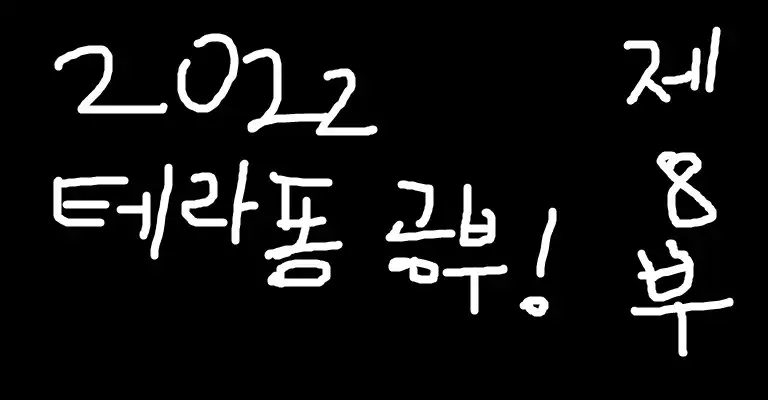 2022
테라폼 공부!
제
8
부